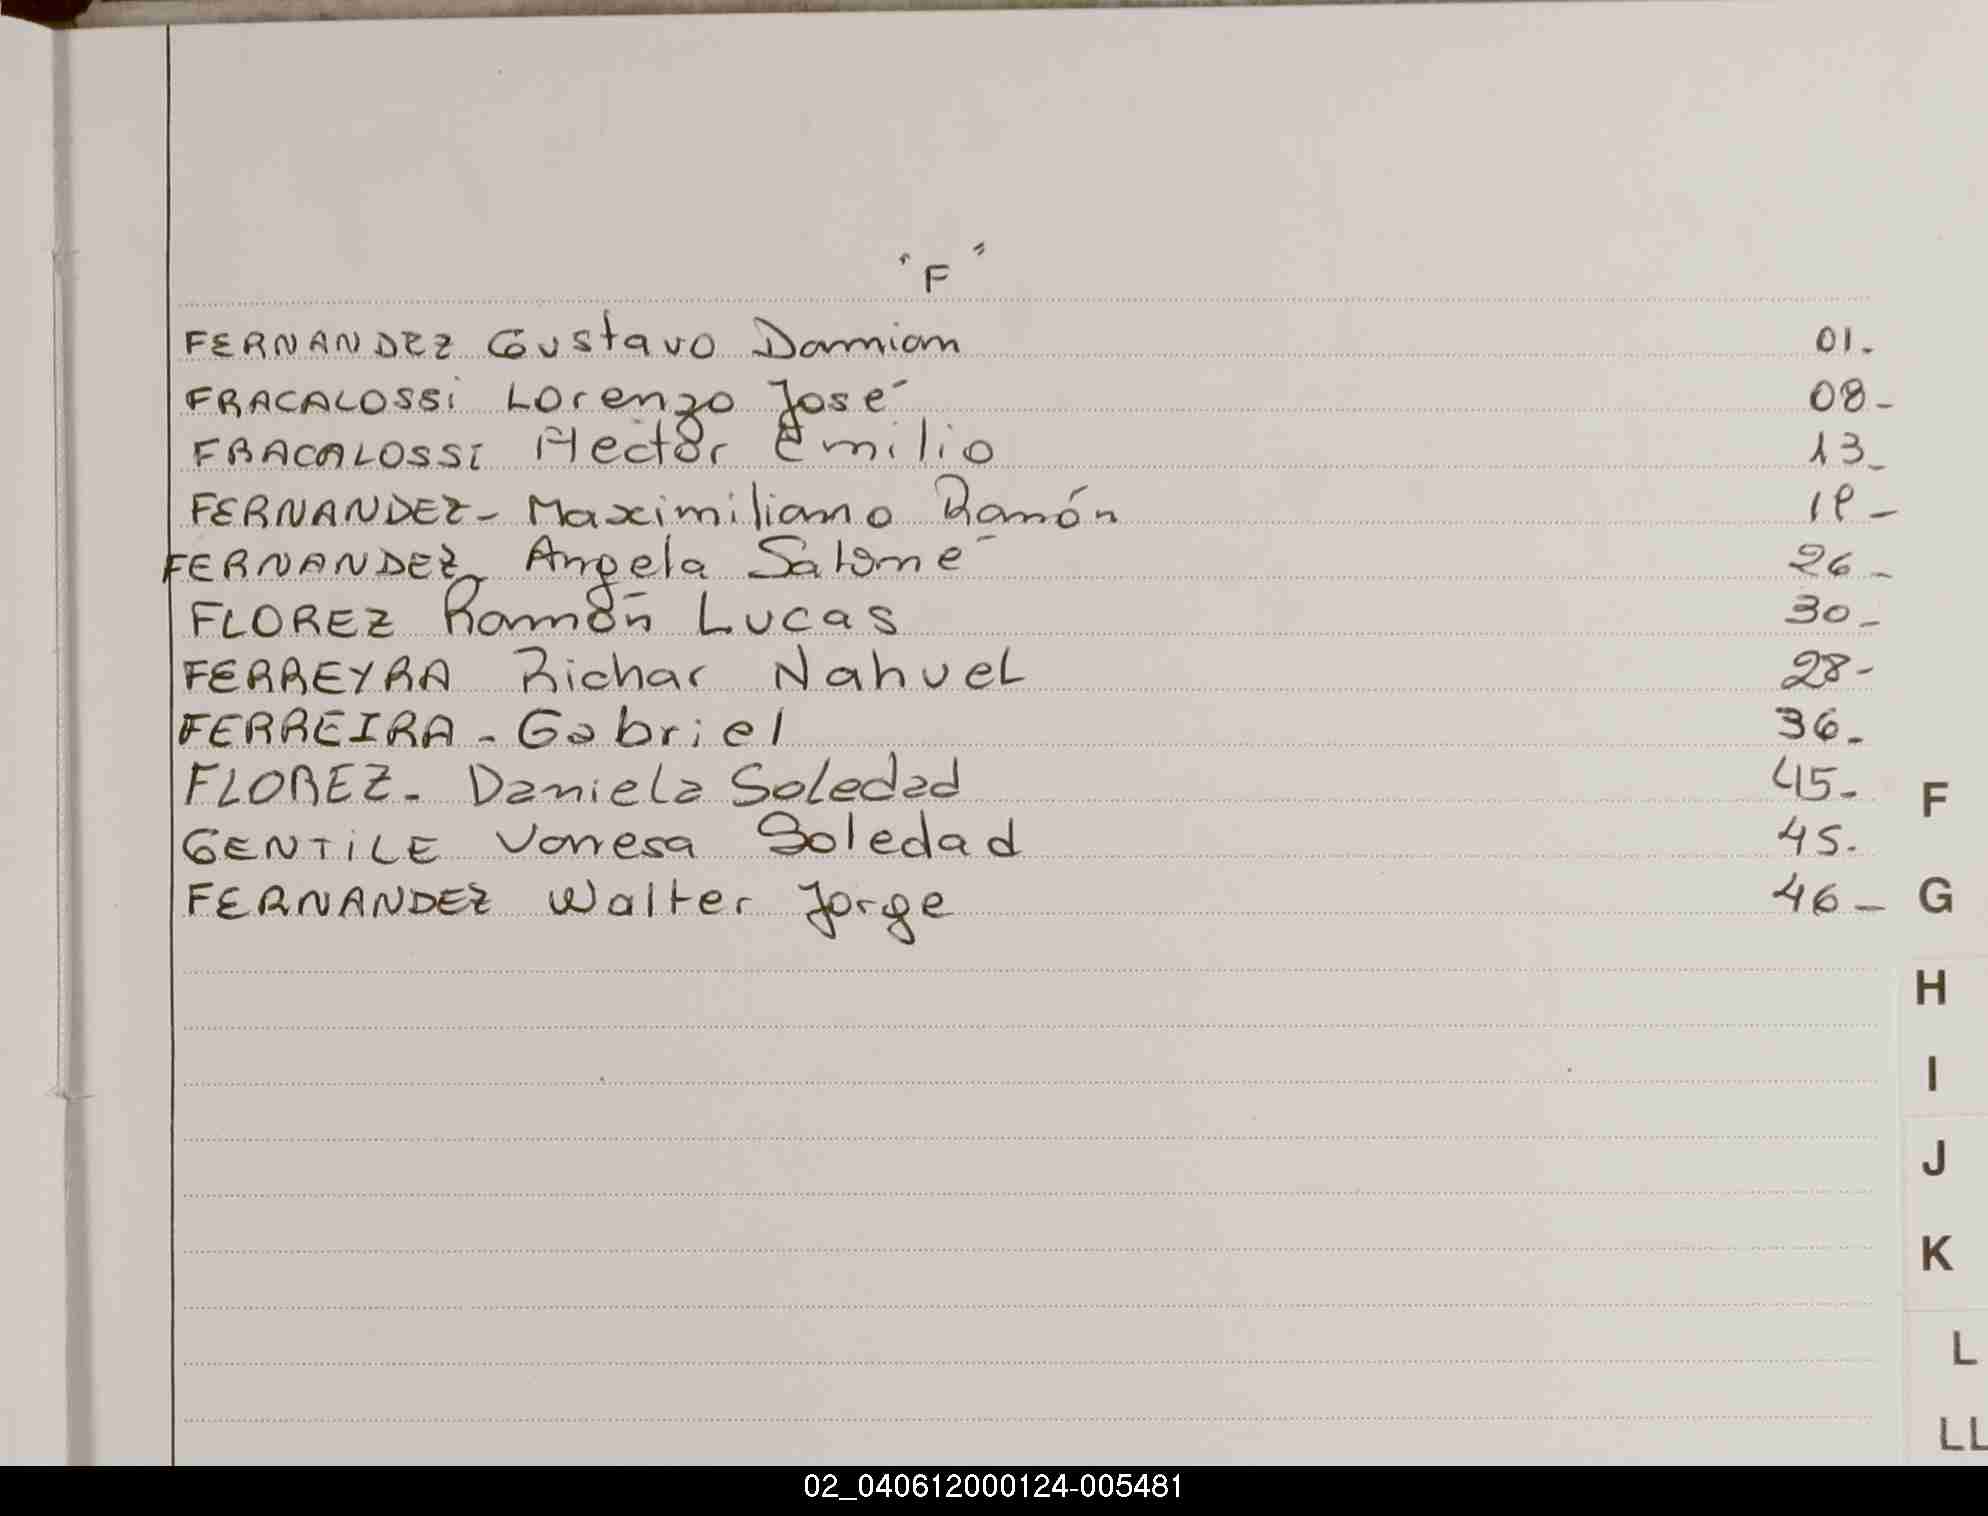 "F"
FERNANDEZ Gustavo Damian 01.
FRACALOSSi Lorenzo José 08-
FRACALOSSI Hector Emilio 13-
FERNANDEZ- Maximiliano Ramón 19-
FERNANDEZ Angela Salomé 26-
FLOREZ Ramón Lucas 30-
FERREYRA Richar Nahuel 28-
FERREIRA - Gabriel 36-
FLOREZ- Daniela Soledad 45-
GENTiLE Vanesa Soledad 45.
FERNANDEZ Walter Jorge 46-
F
G
H
I
J
K
L
LL
02_040612000124-005481